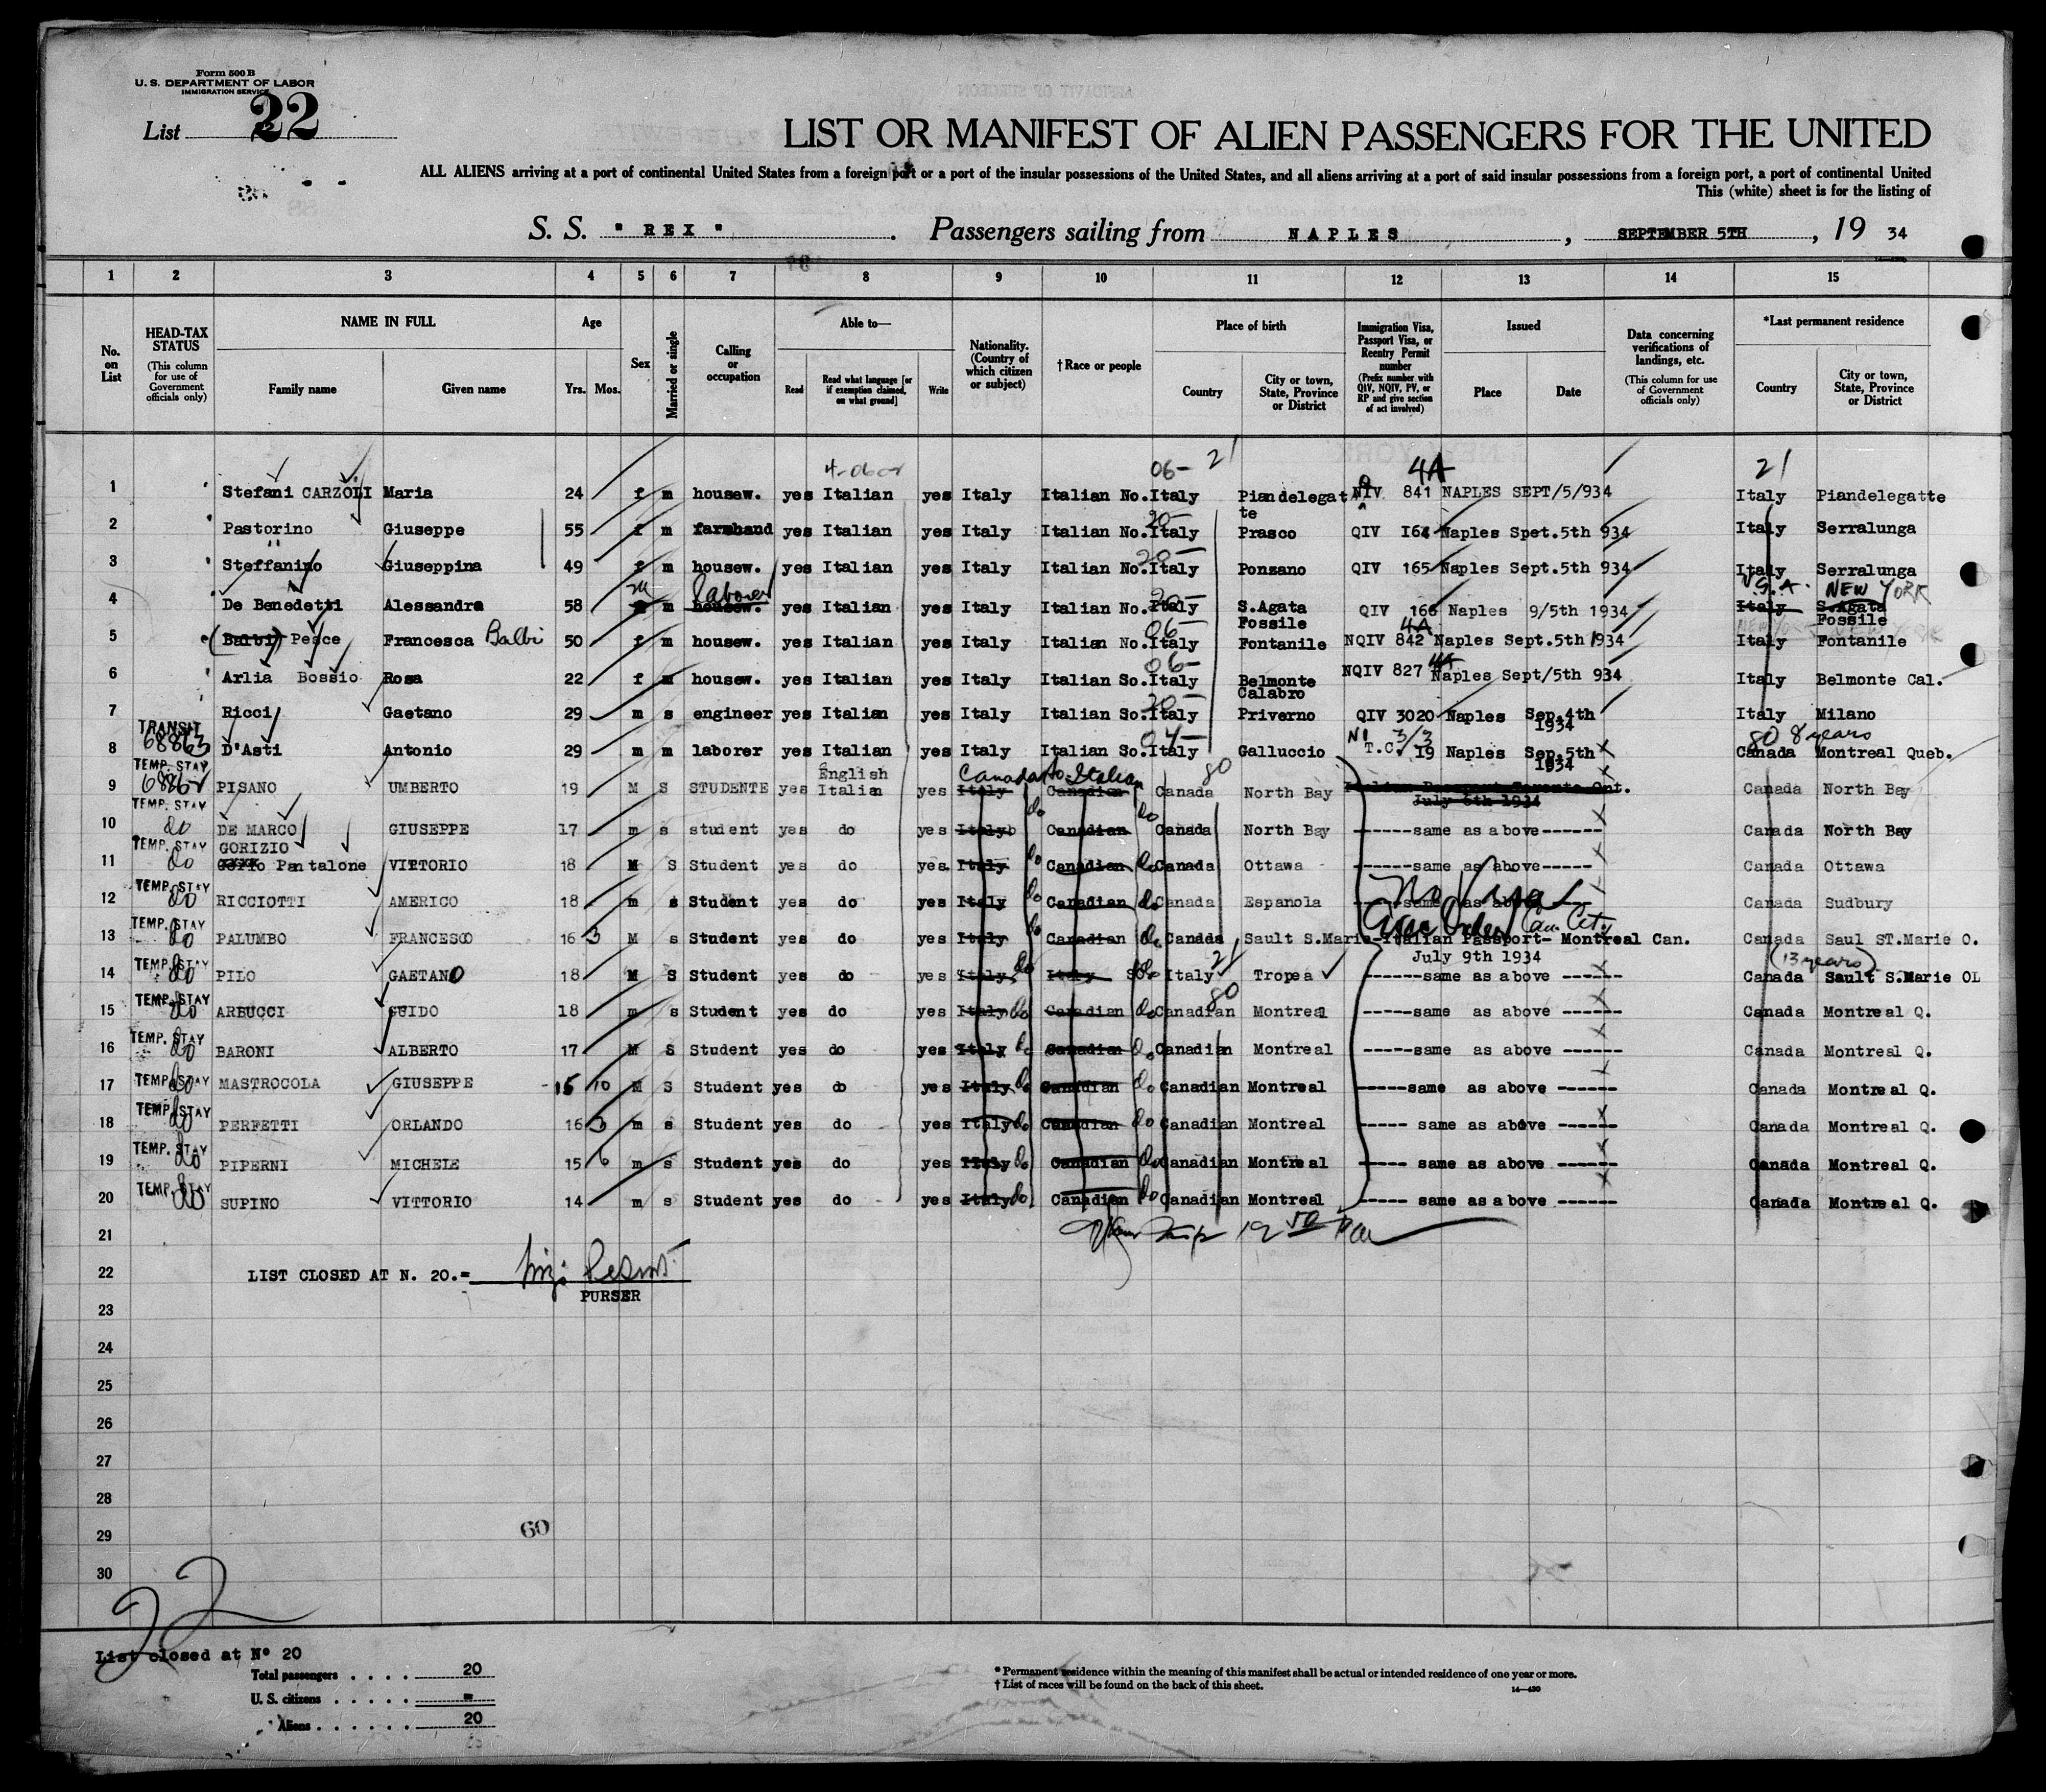 Form 500 B
U. S. DEPARTMENT OF LABOR
IMMIGRATION SERVICE
List 22
LIST OR MANIFEST OF ALIEN PASSENGERS FOR THE UNITED
ALL ALIENS arriving at a port of continental United States from a foreign port or a port of the insular possessions of the United States, and all aliens arriving at a port of said insular possessions from a foreign port, a port of continental United
This (white) sheet is for the listing of
S. S. " REX " . Passengers sailing from NAPLES , SEPTEMBER 5TH , 19 34
1 2 3 4 5 6 7 8 9 10 11 12 13 14 15
No. on List
HEAD-TAX STATUS (This column for use of Government officials only)
NAME IN FULL Family name Given name
Age Yrs. Mos.
Sex
Married or single
Calling or occupation
Able to— Read Read what language [or if exemption claimed, on what ground] Write
Nationality. (Country of which citizen or subject)
†Race or people
Place of birth Country City or town, State, Province or District
Immigration Visa, Passport Visa, or Reentry Permit number (Prefix number with QIV, NQIV, PV, or RP and give section of act involved)
Issued Place Date
Data concerning verifications of landings, etc. (This column for use of Government officials only)
*Last permanent residence Country City or town, State, Province or District
06- 21 4A 21
1 Stefani CARZOLI Maria 24 f m housew. yes Italian yes Italy Italian No. Italy Piandelegatte NIV 841 NAPLES SEPT/5/934 Italy Piandelegatte
2 Pastorino Giuseppe 55 f m farmhand yes Italian yes Italy Italian No. Italy Prasco QIV 164 Naples Spet.5th 934 Italy Serralunga
3 Steffanino Giuseppina 49 f m housew. yes Italian yes Italy Italian No. Italy Ponzano QIV 165 Naples Sept.5th 934 Italy Serralunga
4 De Benedetti Alessandra 58 m m housew. laborer yes Italian yes Italy Italian No. Italy S.Agata Fossile QIV 166 Naples 9/5th 1934 Italy S.Agata Fossile U.S.A. NEW YORK
5 (Balbi) Pesce Francesca Balbi 50 f m housew. yes Italian yes Italy Italian No. Italy Fontanile NQIV 842 4A Naples Sept.5th 1934 Italy Fontanile
6 Arlia Bossio Rosa 22 f m housew. yes Italian yes Italy Italian So. Italy Belmonte Calabro NQIV 827 4A Naples Sept/5th 934 Italy Belmonte Cal.
7 Ricci Gaetano 29 m s engineer yes Italian yes Italy Italian So. Italy Priverno QIV 3020 Naples Sep.4th 1934 Italy Milano
8 TRANSIT 68863 D'Asti Antonio 29 m m laborer yes Italian yes Italy Italian So. Italy Galluccio T.C. 19 3/3 Naples Sep.5th 1934 Canada Montreal Queb. 80 8 years
9 TEMP. STAY PISANO UMBERTO 19 M S STUDENTE yes English Italian yes Italy Canada Canadian So. Italian Canada 80 North Bay Italian Passport Toronto Ont. July 6th 1934 Canada North Bay
10 TEMP. STAY do DE MARCO GIUSEPPE 17 m s student yes do yes Italy do Canadian do Canada North Bay ------same as above------ Canada North Bay
11 TEMP. STAY do GORIZIO Pantalone VITTORIO 18 M S Student yes do yes Italy do Canadian do Canada Ottawa ------same as above----- Canada Ottawa
12 TEMP. STAY do RICCIOTTI AMERICO 18 m s Student yes do yes Italy do Canadian do Canada Espanola same as above Canada Sudbury
No Visa
13 TEMP. STAY do PALUMBO FRANCESCO 16 3 M s Student yes do yes Italy do Canadian do Canada Sault S.Marie-Italian Passport- Montreal Can. July 9th 1934 Canada Saul ST.Marie O.
14 TEMP. STAY do PILO GAETANO 18 M S Student yes do yes Italy do Italy So. do Italy 21 Tropea ------same as above ------ Canada (13 years) Sault S.Marie OL
15 TEMP. STAY do ARBUCCI GUIDO 18 m s Student yes do yes Italy do Canadian do Canadian 80 Montreal -----same as above ------ Canada Montreal Q.
16 TEMP. STAY do BARONI ALBERTO 17 M S Student yes do yes Italy do Canadian do Canadian Montreal -----same as above ------ Canada Montreal Q.
17 TEMP. STAY do MASTROCOLA GIUSEPPE 15 10 M S Student yes do yes Italy do Canadian do Canadian Montreal -----same as above ------ Canada Montreal Q.
18 TEMP. STAY do PERFETTI ORLANDO 16 3 m s Student yes do yes Italy do Canadian do Canadian Montreal ----- same as above ------ Canada Montreal Q.
19 TEMP. STAY do PIPERNI MICHELE 15 6 m s Student yes do yes Italy do Canadian do Canadian Montreal ----- same as above ------ Canada Montreal Q.
20 TEMP. STAY do SUPINO VITTORIO 14 m s Student yes do yes Italy do Canadian do Canadian Montreal ----- same as above ------ Canada Montreal Q.
21
22 LIST CLOSED AT N. 20.=
PURSER
23
24
25
26
27
28
29 60
30
22
List closed at Nº 20
Total passengers . . . . 20
U. S. citizens . . . . . =
Aliens . . . . . . 20
* Permanent residence within the meaning of this manifest shall be actual or intended residence of one year or more.
† List of races will be found on the back of this sheet.
14—430